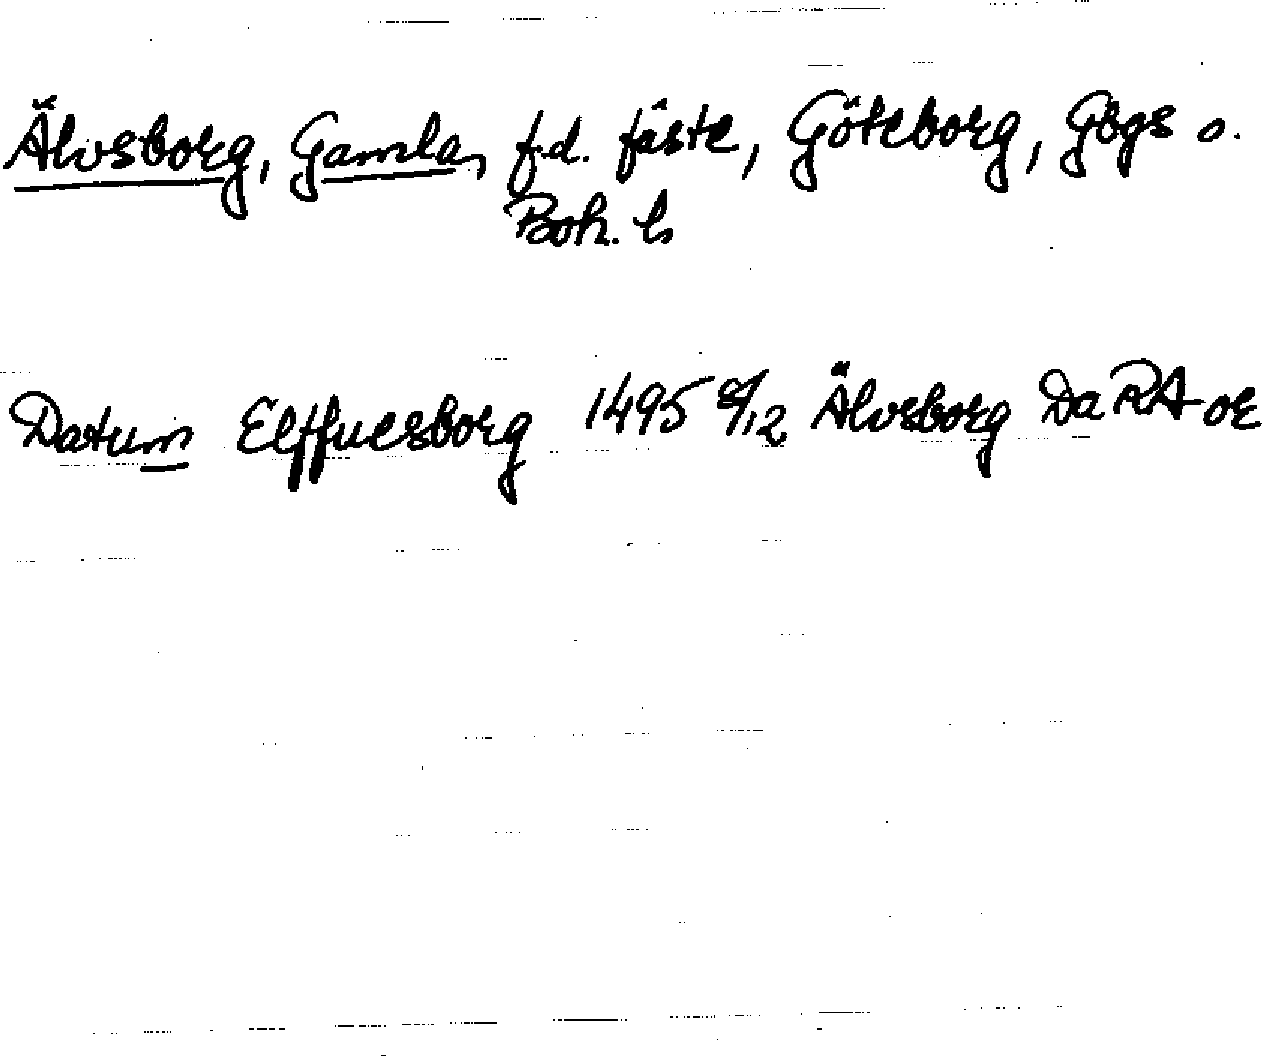 Älvsborg, Gamla, f.d. fäste, Göteborg, Gbgs o.
Boh. l
Datum Elffuesborg 1495 8/12 Älvsborg Da RA or